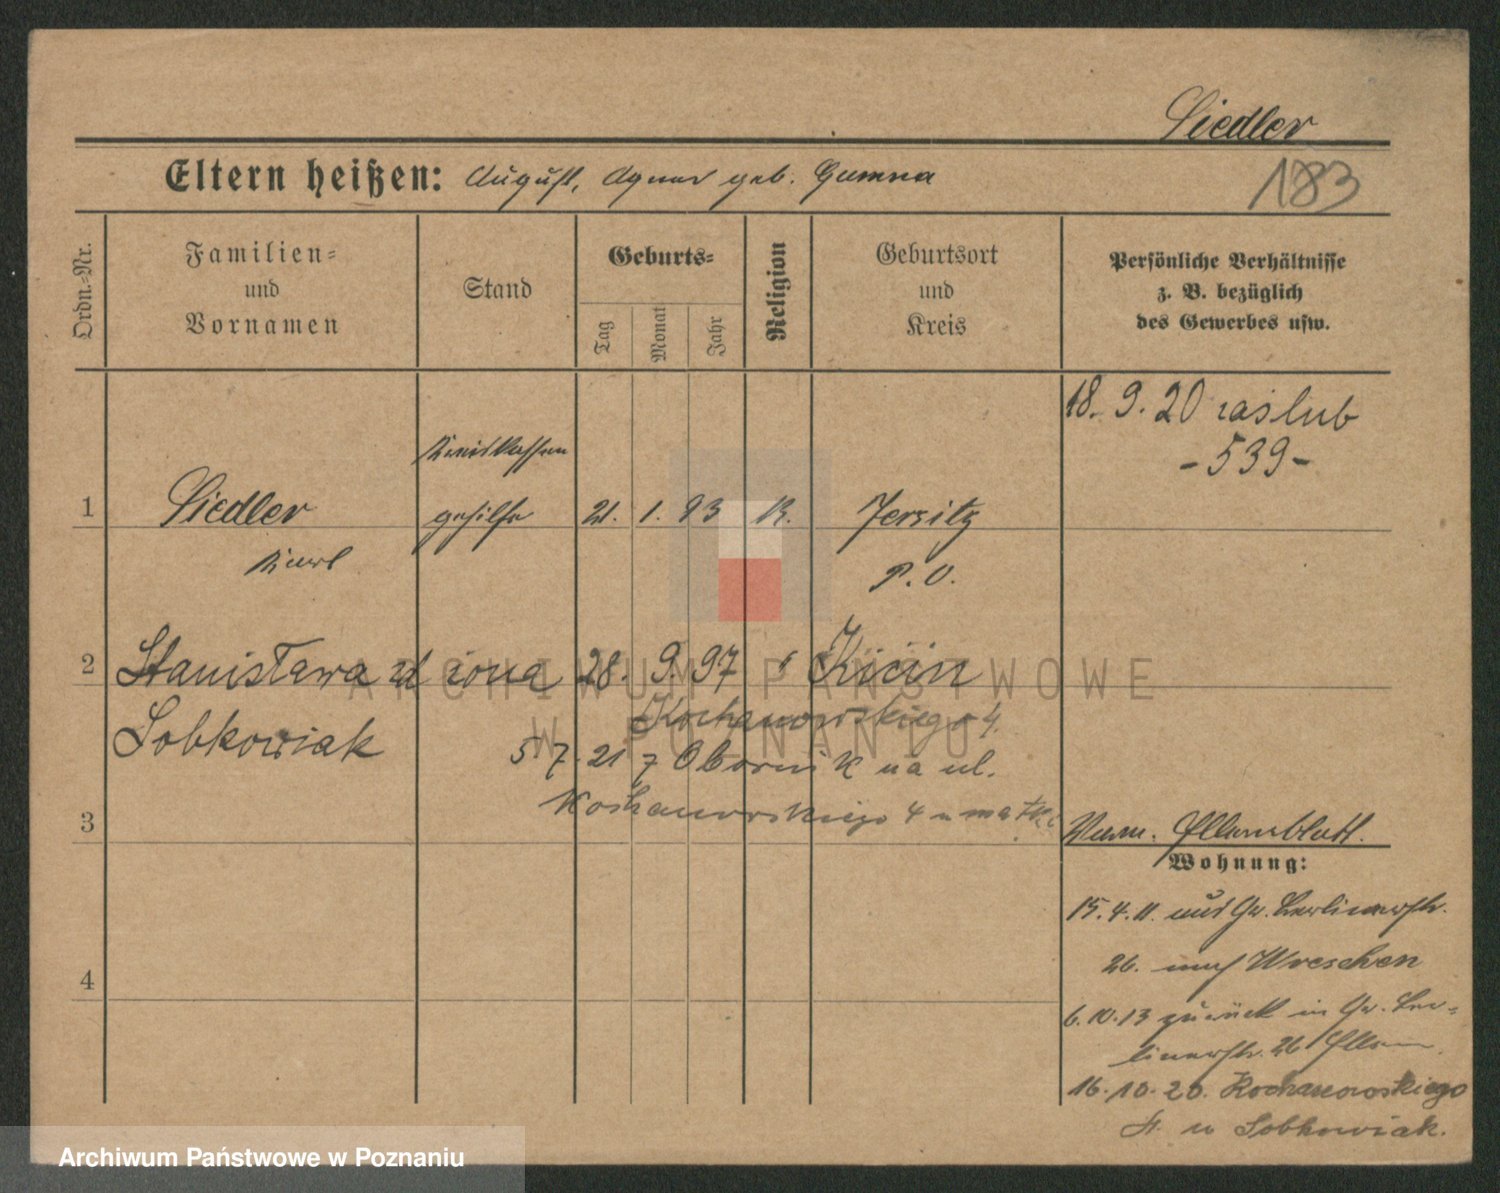 Siedler
183
Eltern heißen: August, Agnes geb. Gumna
Ordn.-Nr.
Familien-
und
Vornamen
Stand
Geburts-
Tag
Monat
Jahr
Religion
Geburtsort
und
Kreis
Persönliche Verhältnisse
z. B. bezüglich
des Gewerbes usw.
18. 9. 20 zaślub
-539-
Kreiskassen
1 Siedler gehilfe 21. 1. 93 K. Jersitz
Karl P. O.
2 Stanisława żona 28. 9. 97 Kicin
Sobkowiak Kochanowskiego 4.
5 7. 21 z Obornik na ul.
Kochanowskiego 4 u matki
3
Verm. Elternblatt.
Wohnung:
15. 4. 11. aus Gr. Berlinerstr.
26. nach Wreschen
4
6. 10. 13 zurück in Gr. Ber-
linerstr. 26 Eltern
16. 10. 20. Kochanowskiego
4. u Sobkowiak.
ARCHIWUM PAŃSTWOWE
W POZNANIU
Archiwum Państwowe w Poznaniu